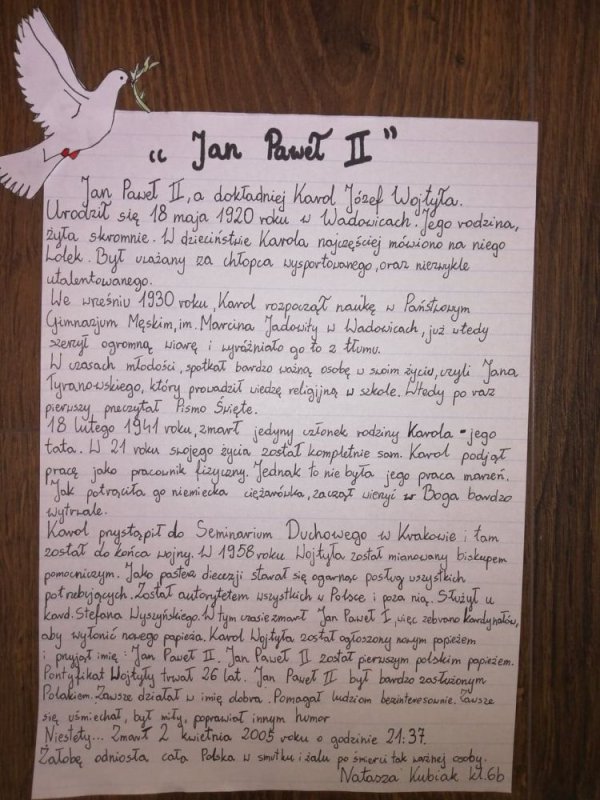 “ Jan Paweł II ”
Jan Paweł II, a dokładniej Karol Józef Wojtyła.
Urodził się 18 maja 1920 roku w Wadowicach. Jego rodzina,
żyła skromnie. W dzieciństwie Karola najczęściej mówiono na niego
Lolek. Był uważany za chłopca wysportowanego, oraz niezwykle
utalentowanego.
We wrześniu 1930 roku, Karol rozpoczął naukę w Państwowym
Gimnazjum Męskim, im. Marcina Jadowity w Wadowicach, już wtedy
szerzył ogromną wiarę i wyróżniało go to z tłumu.
W czasach młodości, spotkał bardzo ważną osobę w swoim życiu, czyli Jana
Tyranowskiego, który prowadził wiedzę religijną w szkole. Wtedy po raz
pierwszy przeczytał Pismo Święte.
18 lutego 1941 roku, zmarł jedyny członek rodziny Karola - jego
tata. W 21 roku swojego życia został kompletnie sam. Karol podjął
pracę jako pracownik fizyczny. Jednak to nie była jego praca marzeń.
Jak potrąciła go niemiecka ciężarówka, zaczął wierzyć w Boga bardzo
wytrwale.
Karol przystąpił do Seminarium Duchowego w Krakowie i tam
został do końca wojny. W 1958 roku Wojtyła został mianowany biskupem
pomocniczym. Jako pasterz diecezji starał się ogarnąć posługą wszystkich
potrzebujących. Został autorytetem wszystkich w Polsce i poza nią. Służył u
kard. Stefana Wyszyńskiego. W tym czasie zmarł Jan Paweł I, więc zebrano Kardynałów,
aby wyłonić nowego papieża. Karol Wojtyła został ogłoszony nowym papieżem
i przyjął imię: Jan Paweł II. Jan Paweł II został pierwszym polskim papieżem.
Pontyfikat Wojtyły trwał 26 lat. Jan Paweł II był bardzo zasłużonym
Polakiem. Zawsze działał w imię dobra. Pomagał ludziom bezinteresownie. Zawsze
się uśmiechał, był miły, poprawiał innym humor
Niestety... Zmarł 2 kwietnia 2005 roku o godzinie 21:37.
Żałobę odniosła cała Polska w smutku i żalu po śmierci tak ważnej osoby.
Natasza Kubiak kl.6b